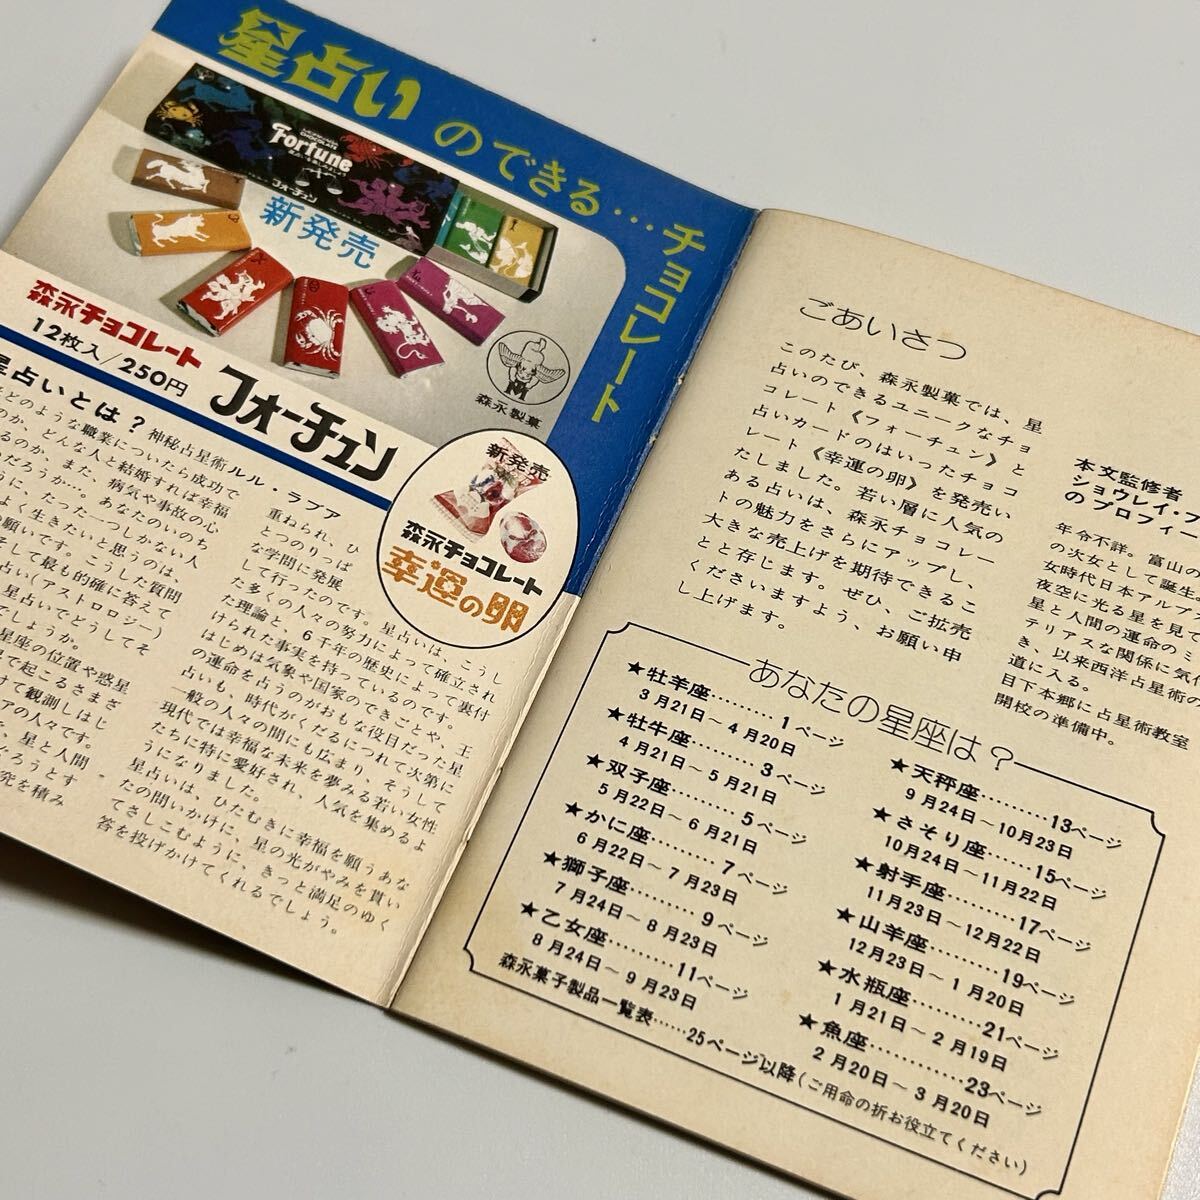 星占いのできる…チョコレート
MORINAGA
CHOCOLATE
Fortune
フォーチュン
新発売
森永チョコレート
12枚入/250円
フォーチュン
森永製菓
新発売
森永チョコレート
幸運の卵
星占いとは?
神秘占星術ルル・ラブア
どのような職業についたら成功で
のか、どんな人と結婚すれば幸福
るのか、また、病気や事故の心
だろうか…。あなたのいのち
うに、たった一つしかない人
よく生きたいと思うのは、
願いです。こうした質問
そして最も的確に答えて
占い(アストロロジー)
星占いでどうしてそ
でしょうか。
星座の位置や惑星
て起こるさまざ
けて観測しはじ
アの人々です。
、星と人間
だろうとす
究を積み
重ねられ、ひ
とつのりっぱ
な学問に発展
して行ったのです。星占いは、こうし
た多くの人々の努力によって確立され
た理論と、6千年の歴史によって裏付
けられた事実を持っているのです。
はじめは気象や国家のできごとや、王
の運命を占うのがおもな役目だった星
占いも、時代がくだるにつれて次第に
一般の人々の間にも広まり、そうして
現代では幸福な未来を夢みる若い女性
たちに特に愛好され、人気を集めるよ
うになりました。
星占いは、ひたむきに幸福を願うあな
たの問いかけに、星の光がやみを貫い
てさしこむように、きっと満足のゆく
答を投げかけてくれるでしょう。
ごあいさつ
このたび、森永製菓では、星
占いのできるユニークなチョ
コレート《フォーチュン》と
占いカードのはいったチョコ
レート《幸運の卵》を発売い
たしました。若い層に人気の
ある占いは、森永チョコレー
トの魅力をさらにアップし、
大きな売上げを期待できるこ
とと存じます。ぜひ、ご拡売
くださいますよう、お願い申
し上げます。
本文監修者
ショウレイ・フ
のプロフィー
年令不詳。富山の
の次女として誕生。
女時代日本アルプ
夜空に光る星を見て
星と人間の運命のミ
テリアスな関係に気付
き、以来西洋占星術の
道に入る。
目下本郷に占星術教室
開校の準備中。
あなたの星座は?
★牡羊座………1ページ
3月21日～4月20日
★牡牛座………3ページ
4月21日～5月21日
★双子座………5ページ
5月22日～6月21日
★かに座………7ページ
6月22日～7月23日
★獅子座………9ページ
7月24日～8月23日
★乙女座………11ページ
8月24日～9月23日
★天秤座………13ページ
9月24日～10月23日
★さそり座………15ページ
10月24日～11月22日
★射手座………17ページ
11月23日～12月22日
★山羊座………19ページ
12月23日～1月20日
★水瓶座………21ページ
1月21日～2月19日
★魚座………23ページ
2月20日～3月20日
森永菓子製品一覧表……25ページ以降(ご用命の折お役立てください)